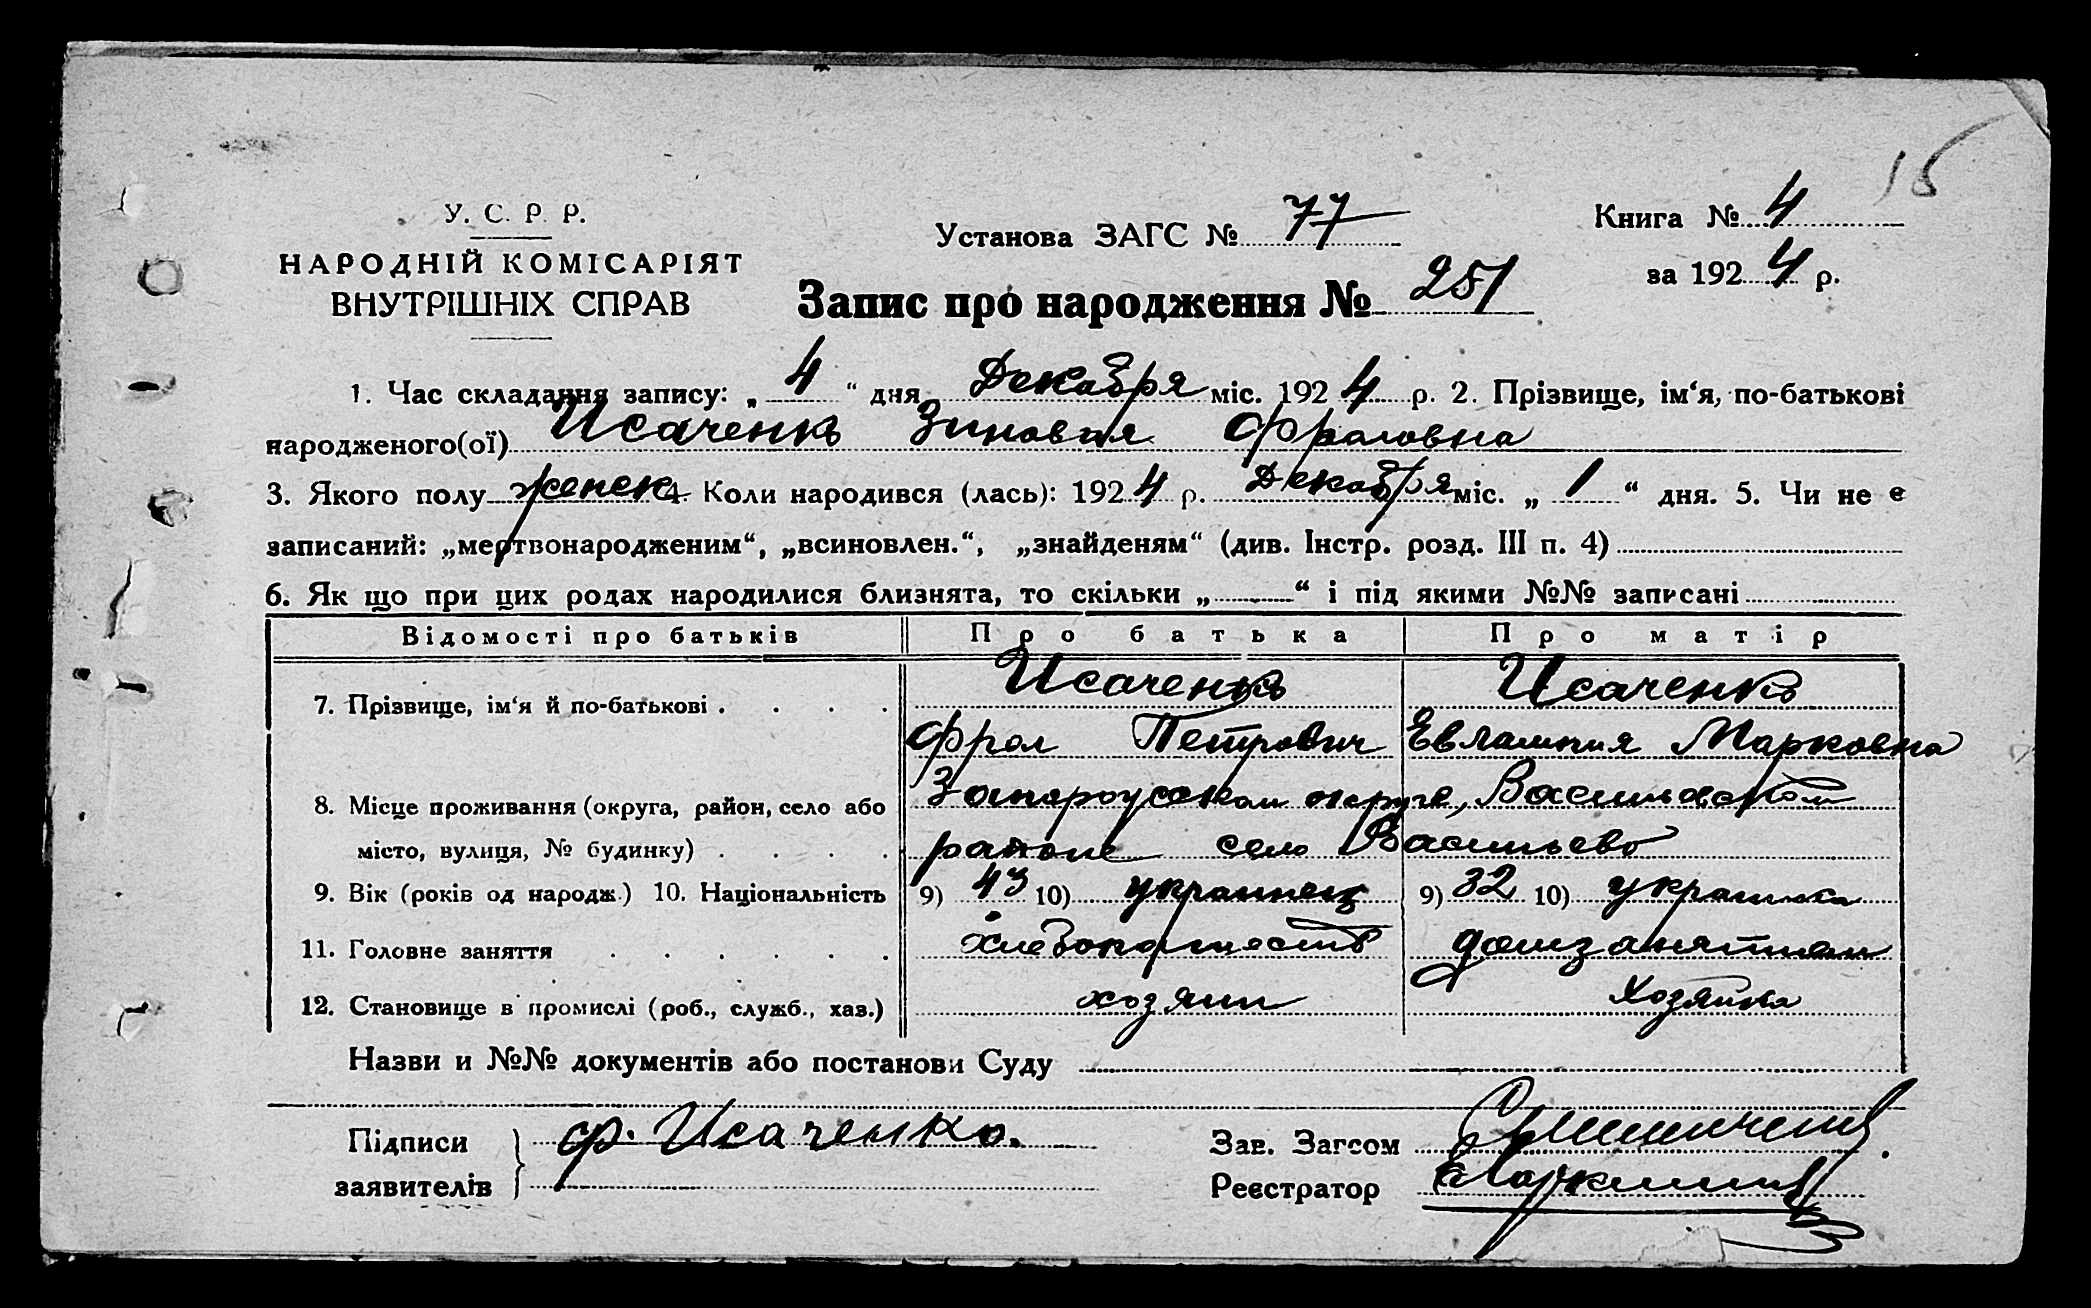 15
У. С. Р. Р.
НАРОДНІЙ КОМІСАРІЯТ
ВНУТРІШНІХ СПРАВ
Установа ЗАГС № 77
Книга № 4
за 1924 р.
Запис про народження № 251
1. Час складання запису: „ 4 “ дня Декабря міс. 1924 р. 2. Прізвище, ім‘я, по-батькові
народженого(ої) Исаченко Зиновия Фроловна
3. Якого полу женск 4. Коли народився (лась): 1924 р. Декабря міс. „ 1 “ дня. 5. Чи не є
записаний: „мертвонародженим“, „всиновлен.“, „знайденям“ (див. Інстр. розд. III п. 4)
6. Як що при цих родах народилися близнята, то скільки „ “ і під якими №№ записані
Відомості про батьків Про батька Про матір
7. Прізвище, ім‘я й по-батькові Исаченко Исаченко
Фрол Петрович Евлампия Марковна
8. Місце проживання (округа, район, село або Запорожском округе, Васильевском
місто, вулиця, № будинку) районе село Васильево
9. Вік (років од народж.) 10. Національність 9) 43 10) украинец 9) 32 10) украинка
11. Головне заняття хлебопашество домзанятием
12. Становище в промислі (роб., служб., хаз.) хозяин Хозяйка
Назви и №№ документів або постанови Суду
Підписи
заявителів
Ф. Исаченко.
Зав. Загсом
Реєстратор